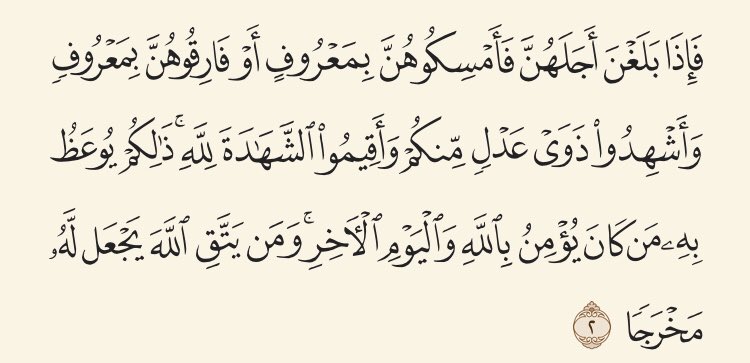 فَإِذَا بَلَغْنَ أَجَلَهُنَّ فَأَمْسِكُوهُنَّ بِمَعْرُوفٍ أَوْ فَارِقُوهُنَّ بِمَعْرُوفٍ
وَأَشْهِدُوا۟ ذَوَىْ عَدْلٍ مِّنكُمْ وَأَقِيمُوا۟ ٱلشَّهَـٰدَةَ لِلَّهِ ۚ ذَٰلِكُمْ يُوعَظُ
بِهِۦ مَن كَانَ يُؤْمِنُ بِٱللَّهِ وَٱلْيَوْمِ ٱلْـَٔاخِرِ ۚ وَمَن يَتَّقِ ٱللَّهَ يَجْعَل لَّهُۥ
مَخْرَجًا ٢